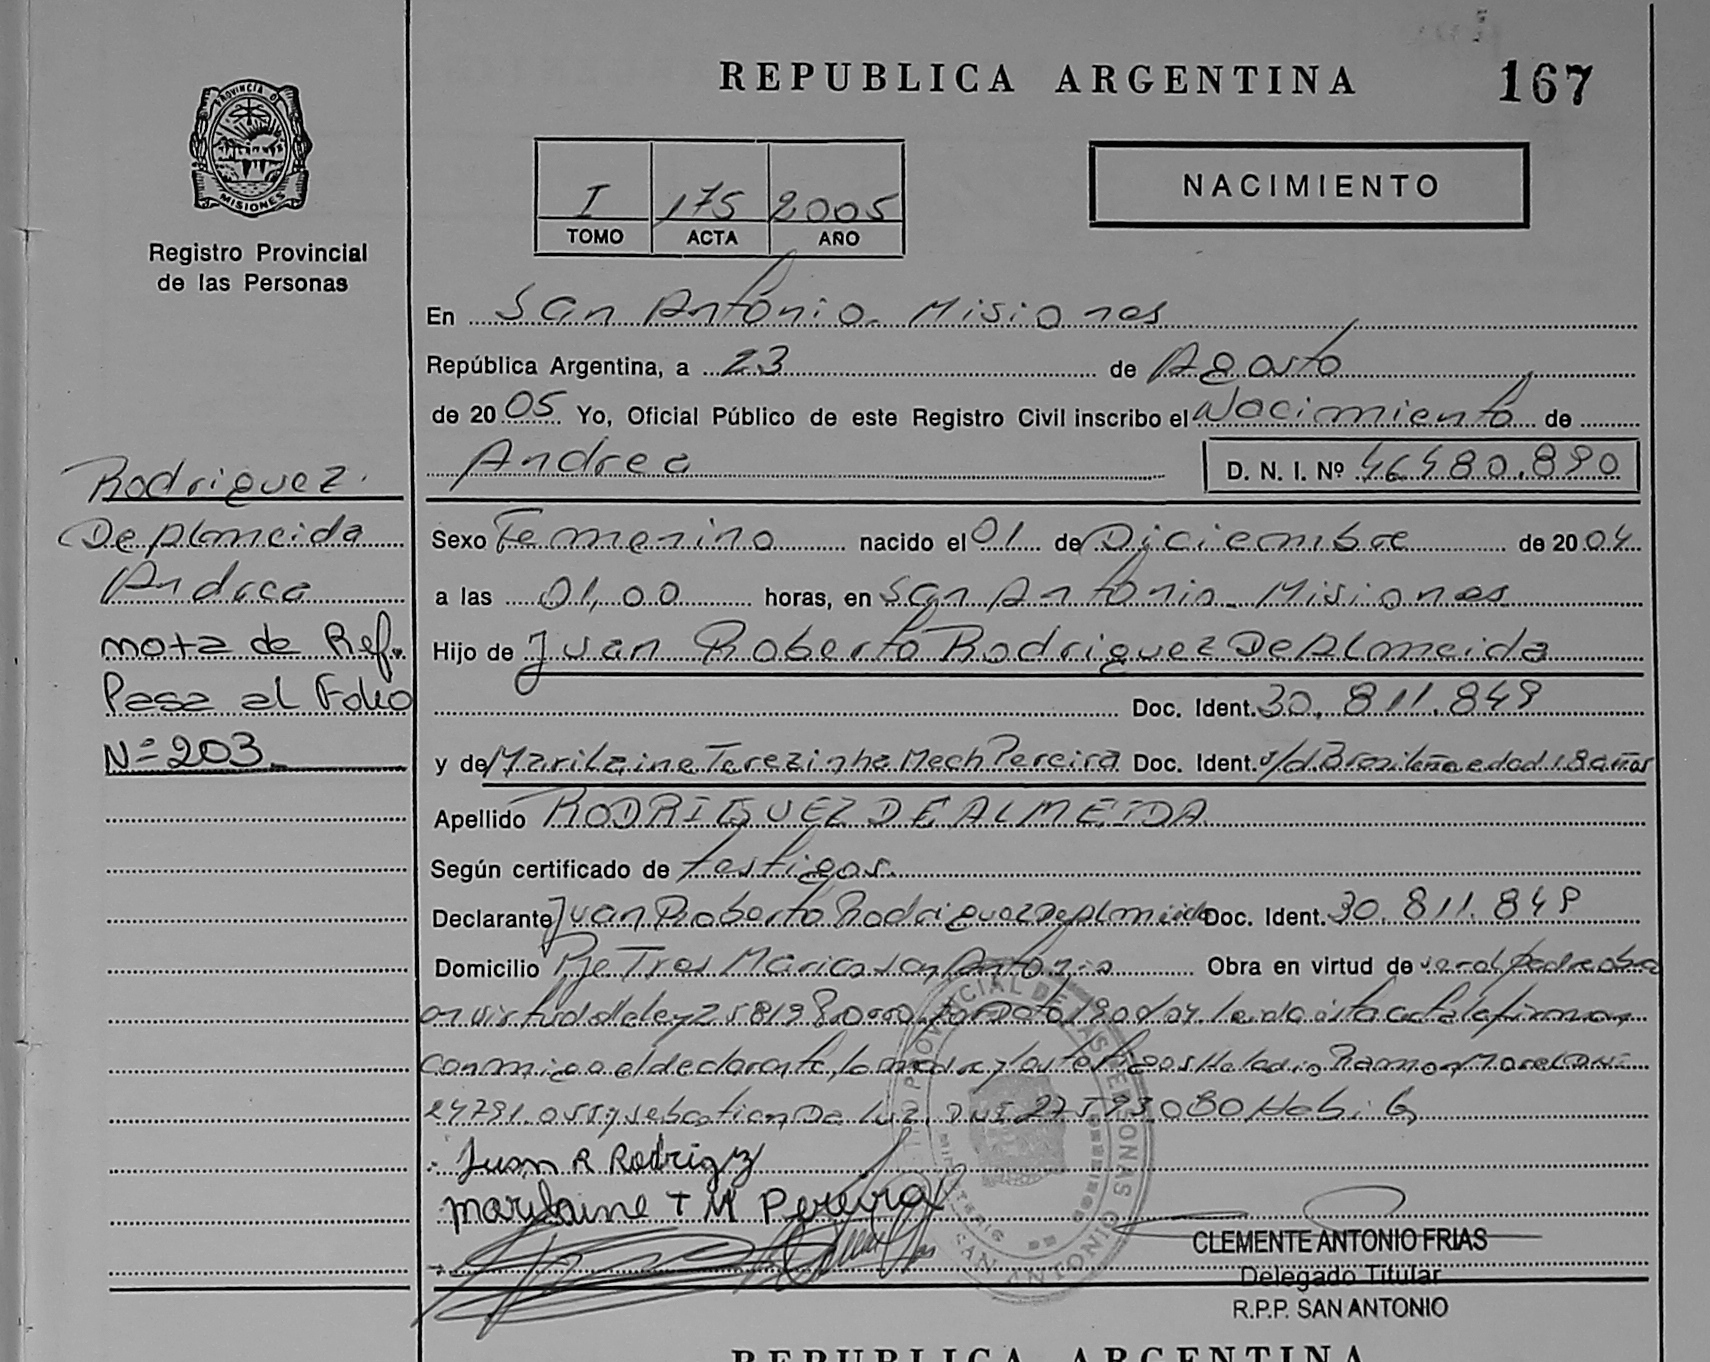 REPUBLICA ARGENTINA 167
PROVINCIA DE MISIONES
Registro Provincial
de las Personas
I 175 2005
TOMO ACTA AÑO
NACIMIENTO
En San Antonio. Misiones
República Argentina, a 23 de Agosto
de 20 05 Yo, Oficial Público de este Registro Civil inscribo el Nacimiento de
Andrea D. N. I. Nº 46480.890
Sexo Femenino nacido el 01 de Diciembre de 20 04
a las 01,00 horas, en San Antonio. Misiones
Hijo de Juan Roberto Rodriguez De Almeida
Doc. Ident. 30.811.849
y de Marilaine Terezinha Mech Pereira Doc. Ident. s/d. Brasileña edad 18 años
Apellido RODRIGUEZ DE ALMEIDA
Según certificado de testigos.
Declarante Juan Roberto Rodriguez De Almeida Doc. Ident. 30.811.849
Domicilio Pje Tres Marias San Antonio Obra en virtud de ser el padre
en virtud de ley 25819 Leida esta acta la firman
conmigo el declarante, la madre y los testigos Heladio Ramon Morel
y Sebastian De Luz
Juan R Rodrigz
marylaine T M Pereira
CLEMENTE ANTONIO FRIAS
Delegado Titular
R.P.P. SAN ANTONIO
Rodriguez
De Almeida
Andrea
nota de Ref.
Pasa al Folio
Nº 203
REPUBLICA ARGENTINA